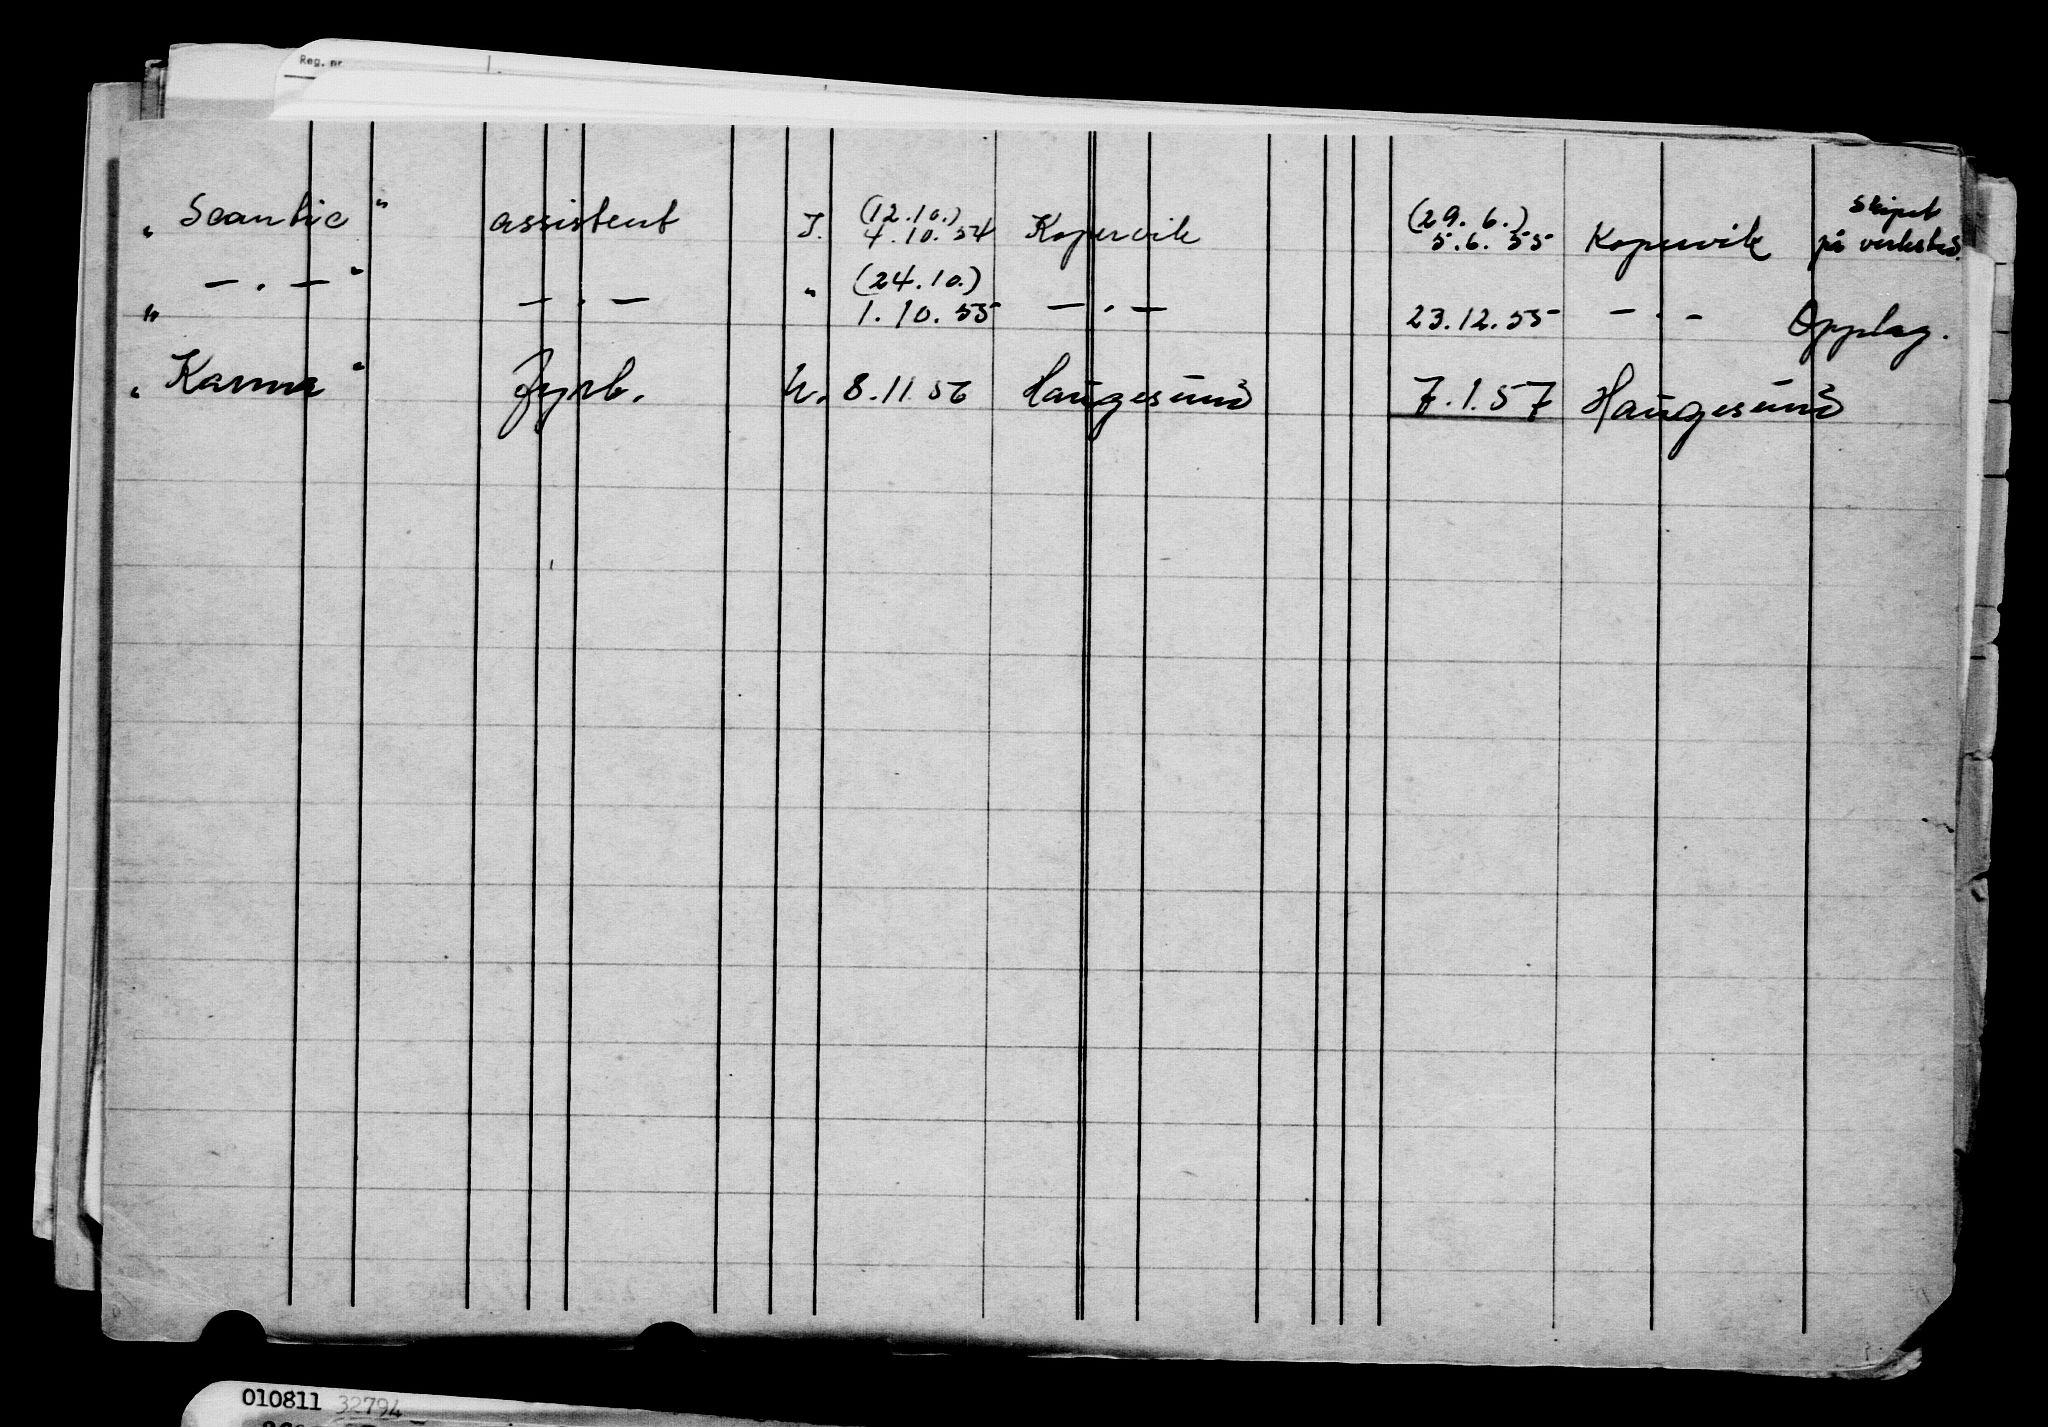 Reg. nr
„ Scantic " assistent I. (12.10.) 4.10.54 Kopervik (29.6.) 5.6.55 Kopervik Skipet på verksted.
„ — . — " — . — " (24.10.) 1.10.55 — . — 23.12.55 — . — Opplag.
„ Karma " fyrb. U. 8.11.56 Haugesund 7.1.57 Haugesund
010811 32794